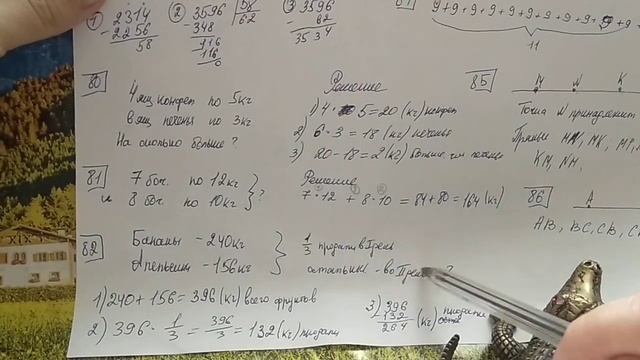 ① 2314
- 2256
58
② 3596 | 58
- 348 62
116
116
0
③ 3596
- 62
3534
9+9+9+9+9+9+9+9+9+9+9
11
80
4 ящ конфет по 5кг
6 ящ печенья по 3кг
На сколько больше ?
Решение
1) 4 · 5 = 20 (кг) конфет
2) 6 · 3 = 18 (кг) печенья
3) 20 - 18 = 2 (кг) больше чем печенья
85
M N K
Точка N принадлежит
Прямые
KM, NM,
81
7 боч. по 12кг
и 8 боч по 10кг } ?
Решение
7 · 12 + 8 · 10 = 84 + 80 = 164 (кг)
86
A
AB, BC, CB, CA
82
Бананы - 240кг
Апельсин - 156кг
1/3 продали в I день
остальные - во II день ?
1) 240 + 156 = 396 (кг) всего фруктов
2) 396 · 1/3 = 396/3 = 132 (кг) продали
3) 396
- 132
264 (кг) продали